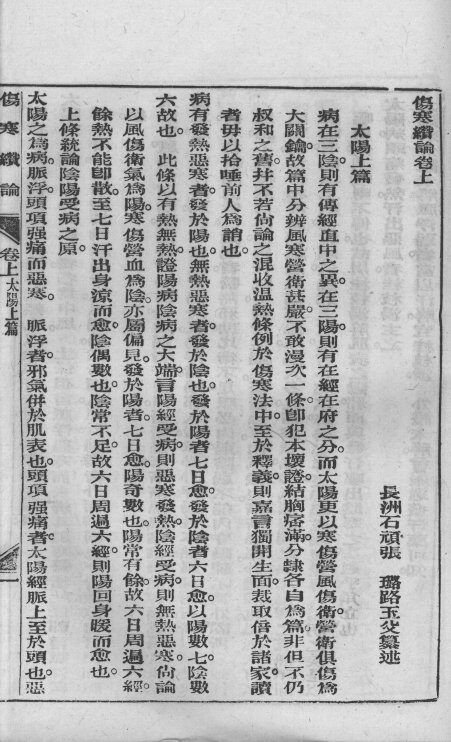 傷寒纘論卷上
長洲石頑張　璐路玉父纂述
太陽上篇
病在三陰。則有傳經直中之異。在三陽。則有在經在府之分。而太陽更以寒傷營。風傷衛。營衛俱傷。爲
大關鑰。故篇中分辨風寒營衛甚嚴。不敢漫次一條。卽犯本壞證。結胸痞滿。分隸各自爲篇。非但不仍
叔和之舊。并不若尙論之混收溫熱條例於傷寒法中。至於釋義。則嘉言獨開生面。裁取倍於諸家。讀
者毋以拾唾前人爲誚也。
病有發熱惡寒者。發於陽也。無熱惡寒者。發於陰也。發於陽者七日愈。發於陰者六日愈。以陽數七。陰數
六故也。　此條以有熱無熱。證陽病陰病之大端。言陽經受病。則惡寒發熱。陰經受病。則無熱惡寒。尙論
以風傷衛氣爲陽。寒傷營血爲陰。亦屬偏見。發於陽者七日愈。陽奇數也。陽常有餘。故六日周遍六經。
餘熱不能卽散。至七日汗出身涼而愈。陰偶數也。陰常不足。故六日周遍六經。則陽回身暖而愈也。
上條統論陰陽受病之原。
太陽之爲病。脈浮。頭項强痛而惡寒。　脈浮者。邪氣併於肌表也。頭項强痛者。太陽經脈上至於頭也。惡
傷寒纘論
卷上 太陽上篇